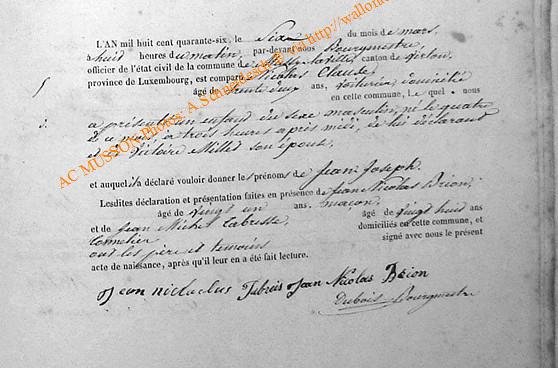 L'AN mil huit cent quarante-six, le Six du mois de mars,
à huit heures du matin par-devant nous Bourgmestre,
officier de l'état civil de la commune de canton de Virton,
province de Luxembourg, est comparu Nicolas Claude,
âgé de trente deux ans, voiturier domicilié
en cette commune, lequel nous
a présenté un enfant du sexe masculin, né le quatre
de ce mois à trois heures après midi, de lui déclarant
et de Victoire Millet son épouse,
et auquel il a déclaré vouloir donner les prénoms de Jean Joseph.
Lesdites déclaration et présentation faites en présence de Jean Nicolas Brion,
âgé de vingt un ans. maçon,
et de Jean Michel âgé de vingt huit ans
domiciliés en cette commune, et
ont les père et temoins signé avec nous le présent
acte de naissance, après qu'il leur en a été fait lecture.
Jean Nicolas Brion
Dubois Bourgmestre
AC MUSSON Photos: A.Schmet http://wallon